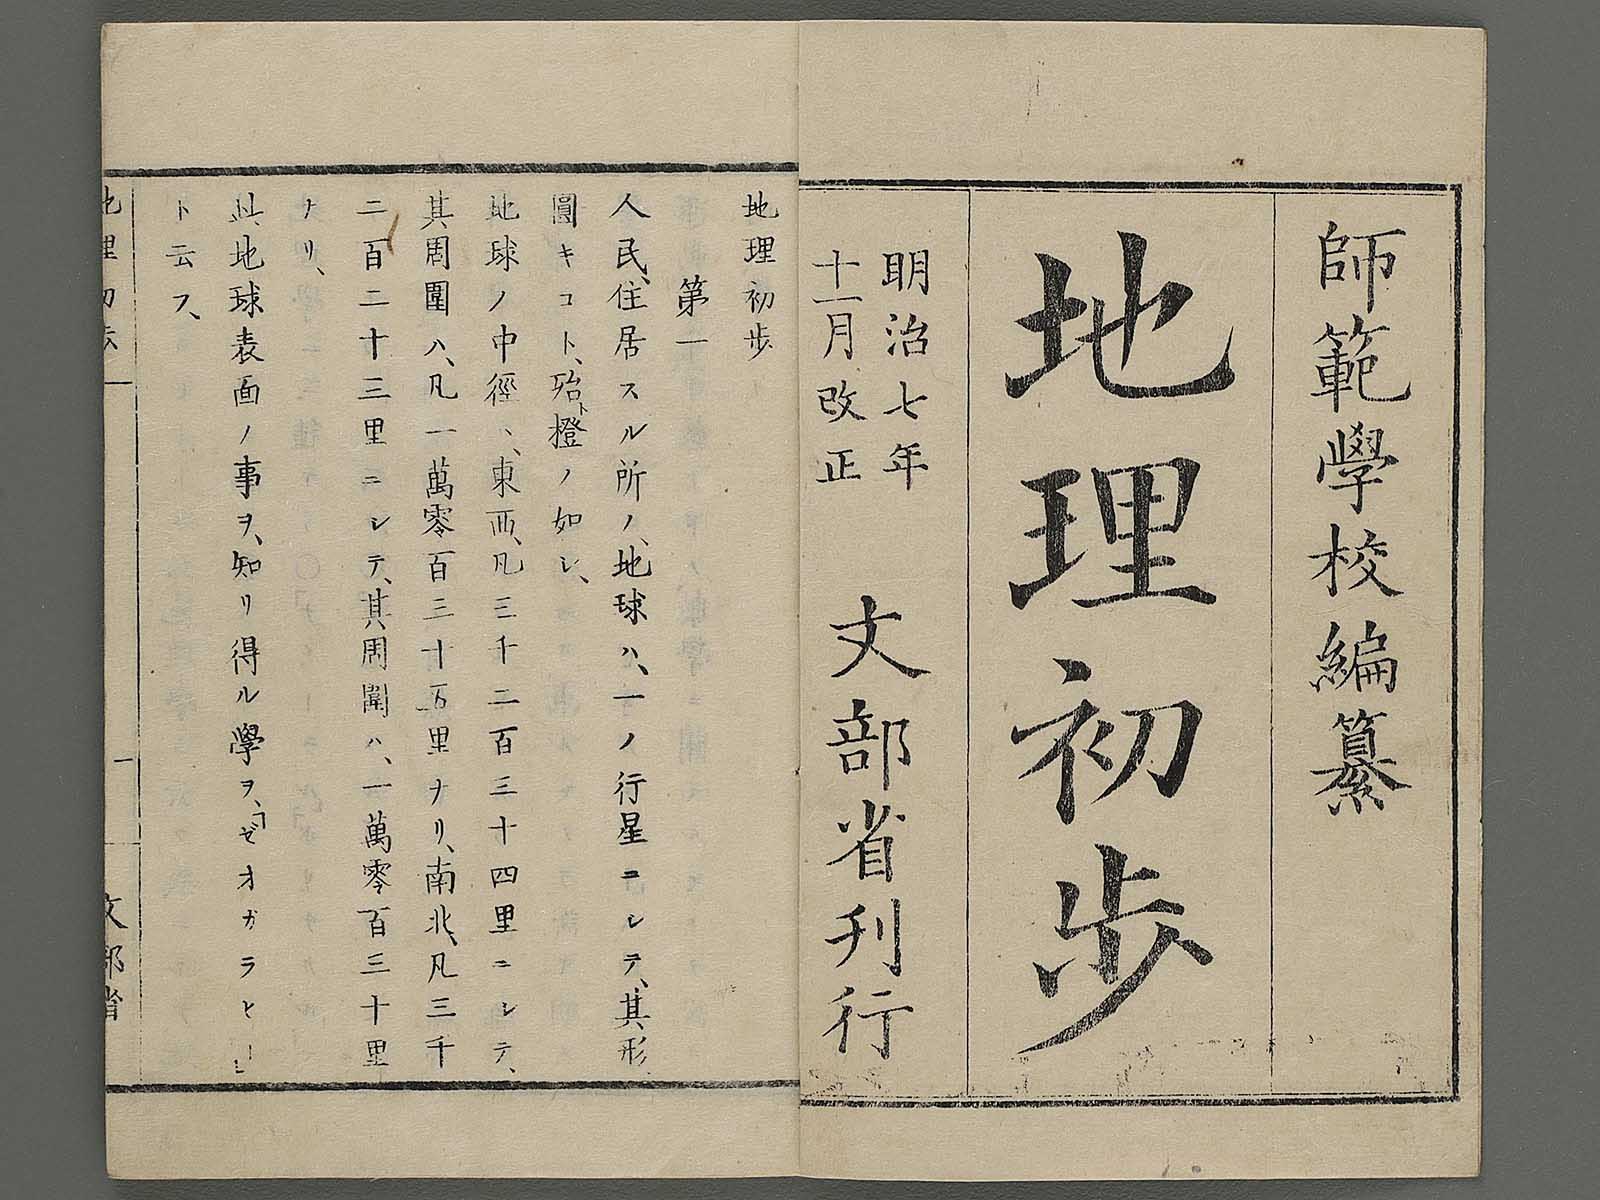 師範學校編纂
地理初步
明治七年
十一月改正
文部省刊行
地理初步
第一
人民、住居スル所ノ、地球ハ、一ノ行星ニシテ、其形
圓キコト、殆ト橙ノ如シ、
地球ノ中徑ハ、東西、凡三千二百三十四里ニシテ、
其周圍ハ、凡一萬零百三十五里ナリ、南北、凡三千
二百二十三里ニシテ、其周圍ハ、一萬零百三十里
ナリ、
此地球表面ノ事ヲ、知リ得ル學ヲ、「ゼオガラヒー」
ト云フ、
地理初步 一 文部省